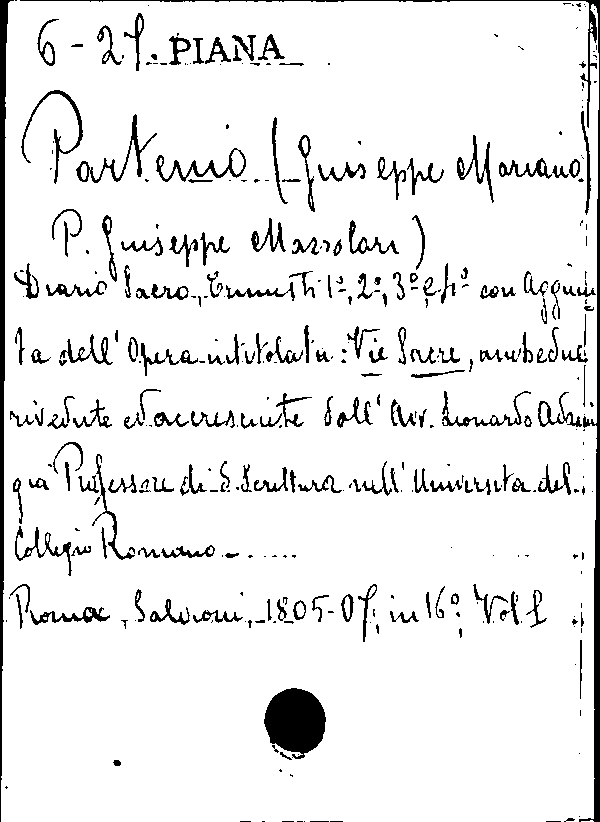 6-27. PIANA
Partenio (Giuseppe Mariano
P. Giuseppe Mazzolari)
Diario Sacro, Trimestri 1º, 2º, 3º e 4º con Aggiun
ta dell' Opera intitolata: Vie Sacre, ambedue
rivedute ed accresciute dall' Avv. Leonardo
già Professore di S. Scrittura nell' Università del
Collegio Romano
Roma, Salvioni, 1805-07, in 16º, Vol